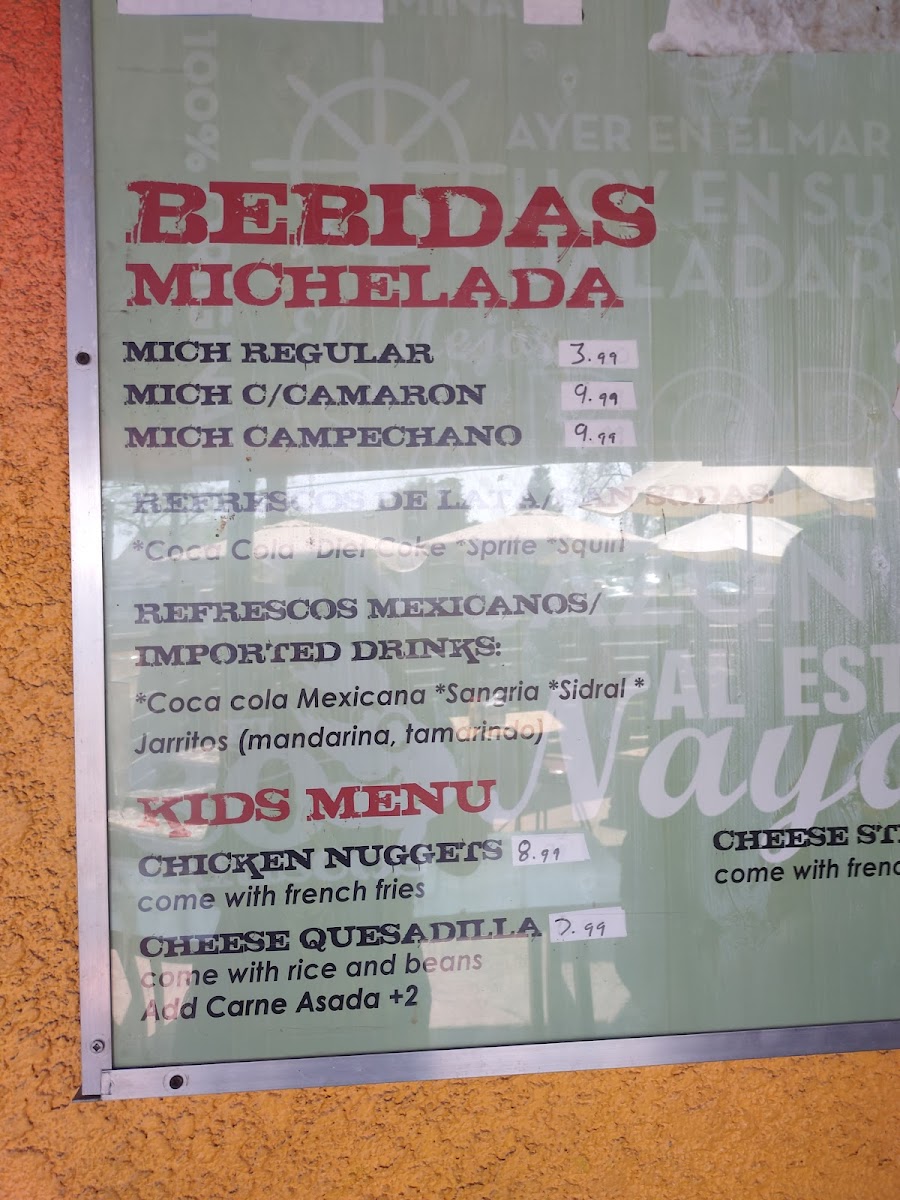 MINA
100%
AYER EN EL MAR
HOY EN SU
PALADAR
BEBIDAS
MICHELADA
El Mejor
MICH REGULAR 3.99
MICH C/CAMARON 9.99
MICH CAMPECHANO 9.99
REFRESCOS DE LATA/CAN SODAS:
*Coca Cola *Diet Coke *Sprite *Squirt
REFRESCOS MEXICANOS/
IMPORTED DRINKS:
*Coca cola Mexicana *Sangria *Sidral *
Jarritos (mandarina, tamarindo)
AL EST
Naya
KIDS MENU
CHICKEN NUGGETS 8.99
come with french fries
CHEESE ST
come with frenc
CHEESE QUESADILLA 7.99
come with rice and beans
Add Carne Asada +2